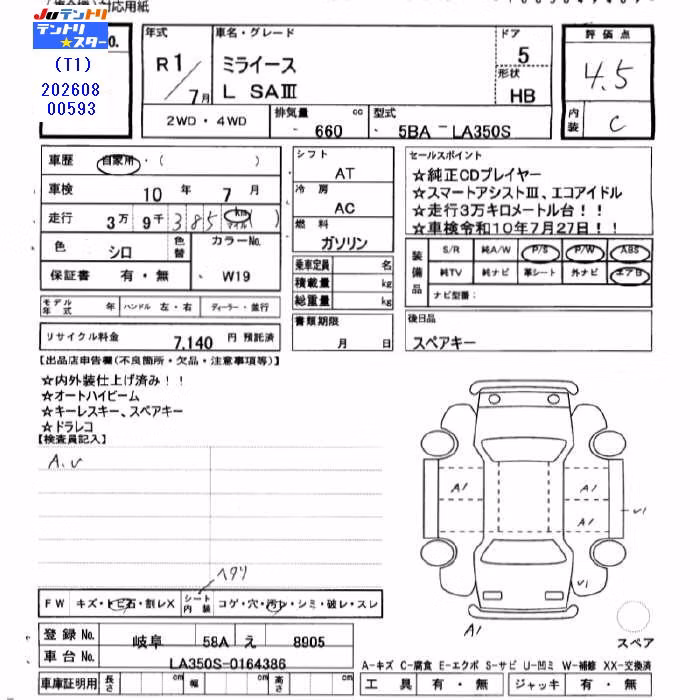 対応用紙
Juテントリ
テントリ
★スター
No.
(T1)
202608
00593
年式
R1/7月
車名・グレード
ミライース
L SAⅢ
ドア
5
形状
HB
評価点
4.5
内装
C
2WD・4WD
排気量 cc
660
型式
5BA - LA350S
車歴 自家用・( )
車検 10年 7月
走行 3万 9千 385 km マイル ( )
色 シロ 色替
カラーNo.
W19
保証書 有・無
モデル年式 年 ハンドル 左・右 ディーラー・並行
リサイクル料金 7,140 円 預託済
シフト
AT
冷房
AC
燃料
ガソリン
乗車定員 名
積載量 kg
総重量 kg
書類期限
月 日
セールスポイント
☆純正CDプレイヤー
☆スマートアシストⅢ、エコアイドル
☆走行3万キロメートル台！！
☆車検令和10年7月27日！！
装備品
S/R 純A/W P/S P/W ABS
純TV 純ナビ 革シート 外ナビ エアB
ナビ型番：
後日品
スペアキー
【出品店申告欄(不良箇所・欠品・注意事項等)】
☆内外装仕上げ済み！！
☆オートハイビーム
☆キーレスキー、スペアキー
☆ドラレコ
【検査員記入】
A.U
ヘタリ
FW キズ・トビ石・割レX シート内装 コゲ・穴・汚レ・シミ・破レ・スレ
登録No. 岐阜 58A え 8905
車台No. LA350S-0164386
車庫証明用 長さ cm 幅 cm 高さ cm
A1
A1
A1
U1
U1
A1
スペア
A-キズ C-腐食 E-エクボ S-サビ U-凹ミ W-補修 XX-交換済
工具 有・無 ジャッキ 有・無